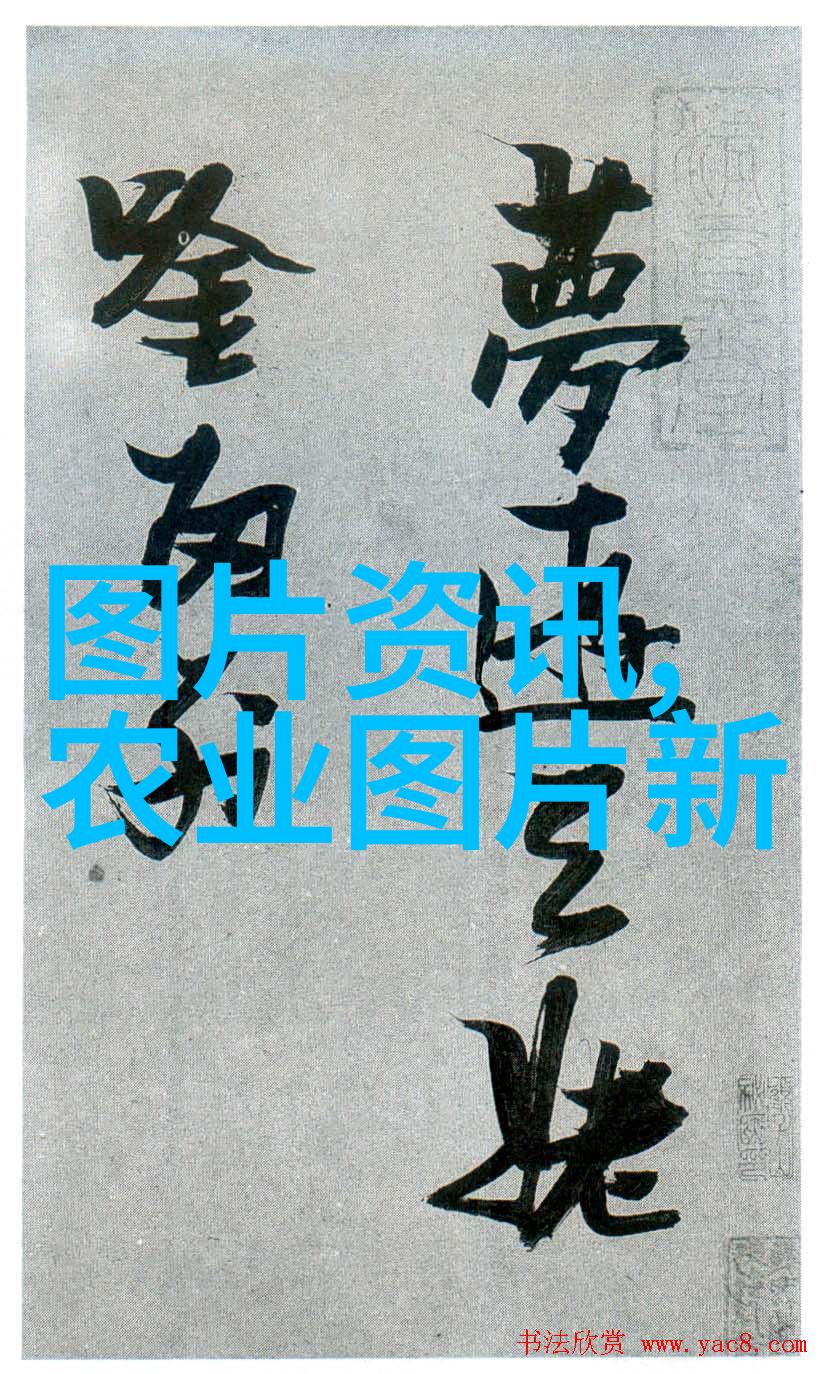 夢遊天姥
唫留别
图片资讯,
农业图片新
书法欣赏 www.yac8.com